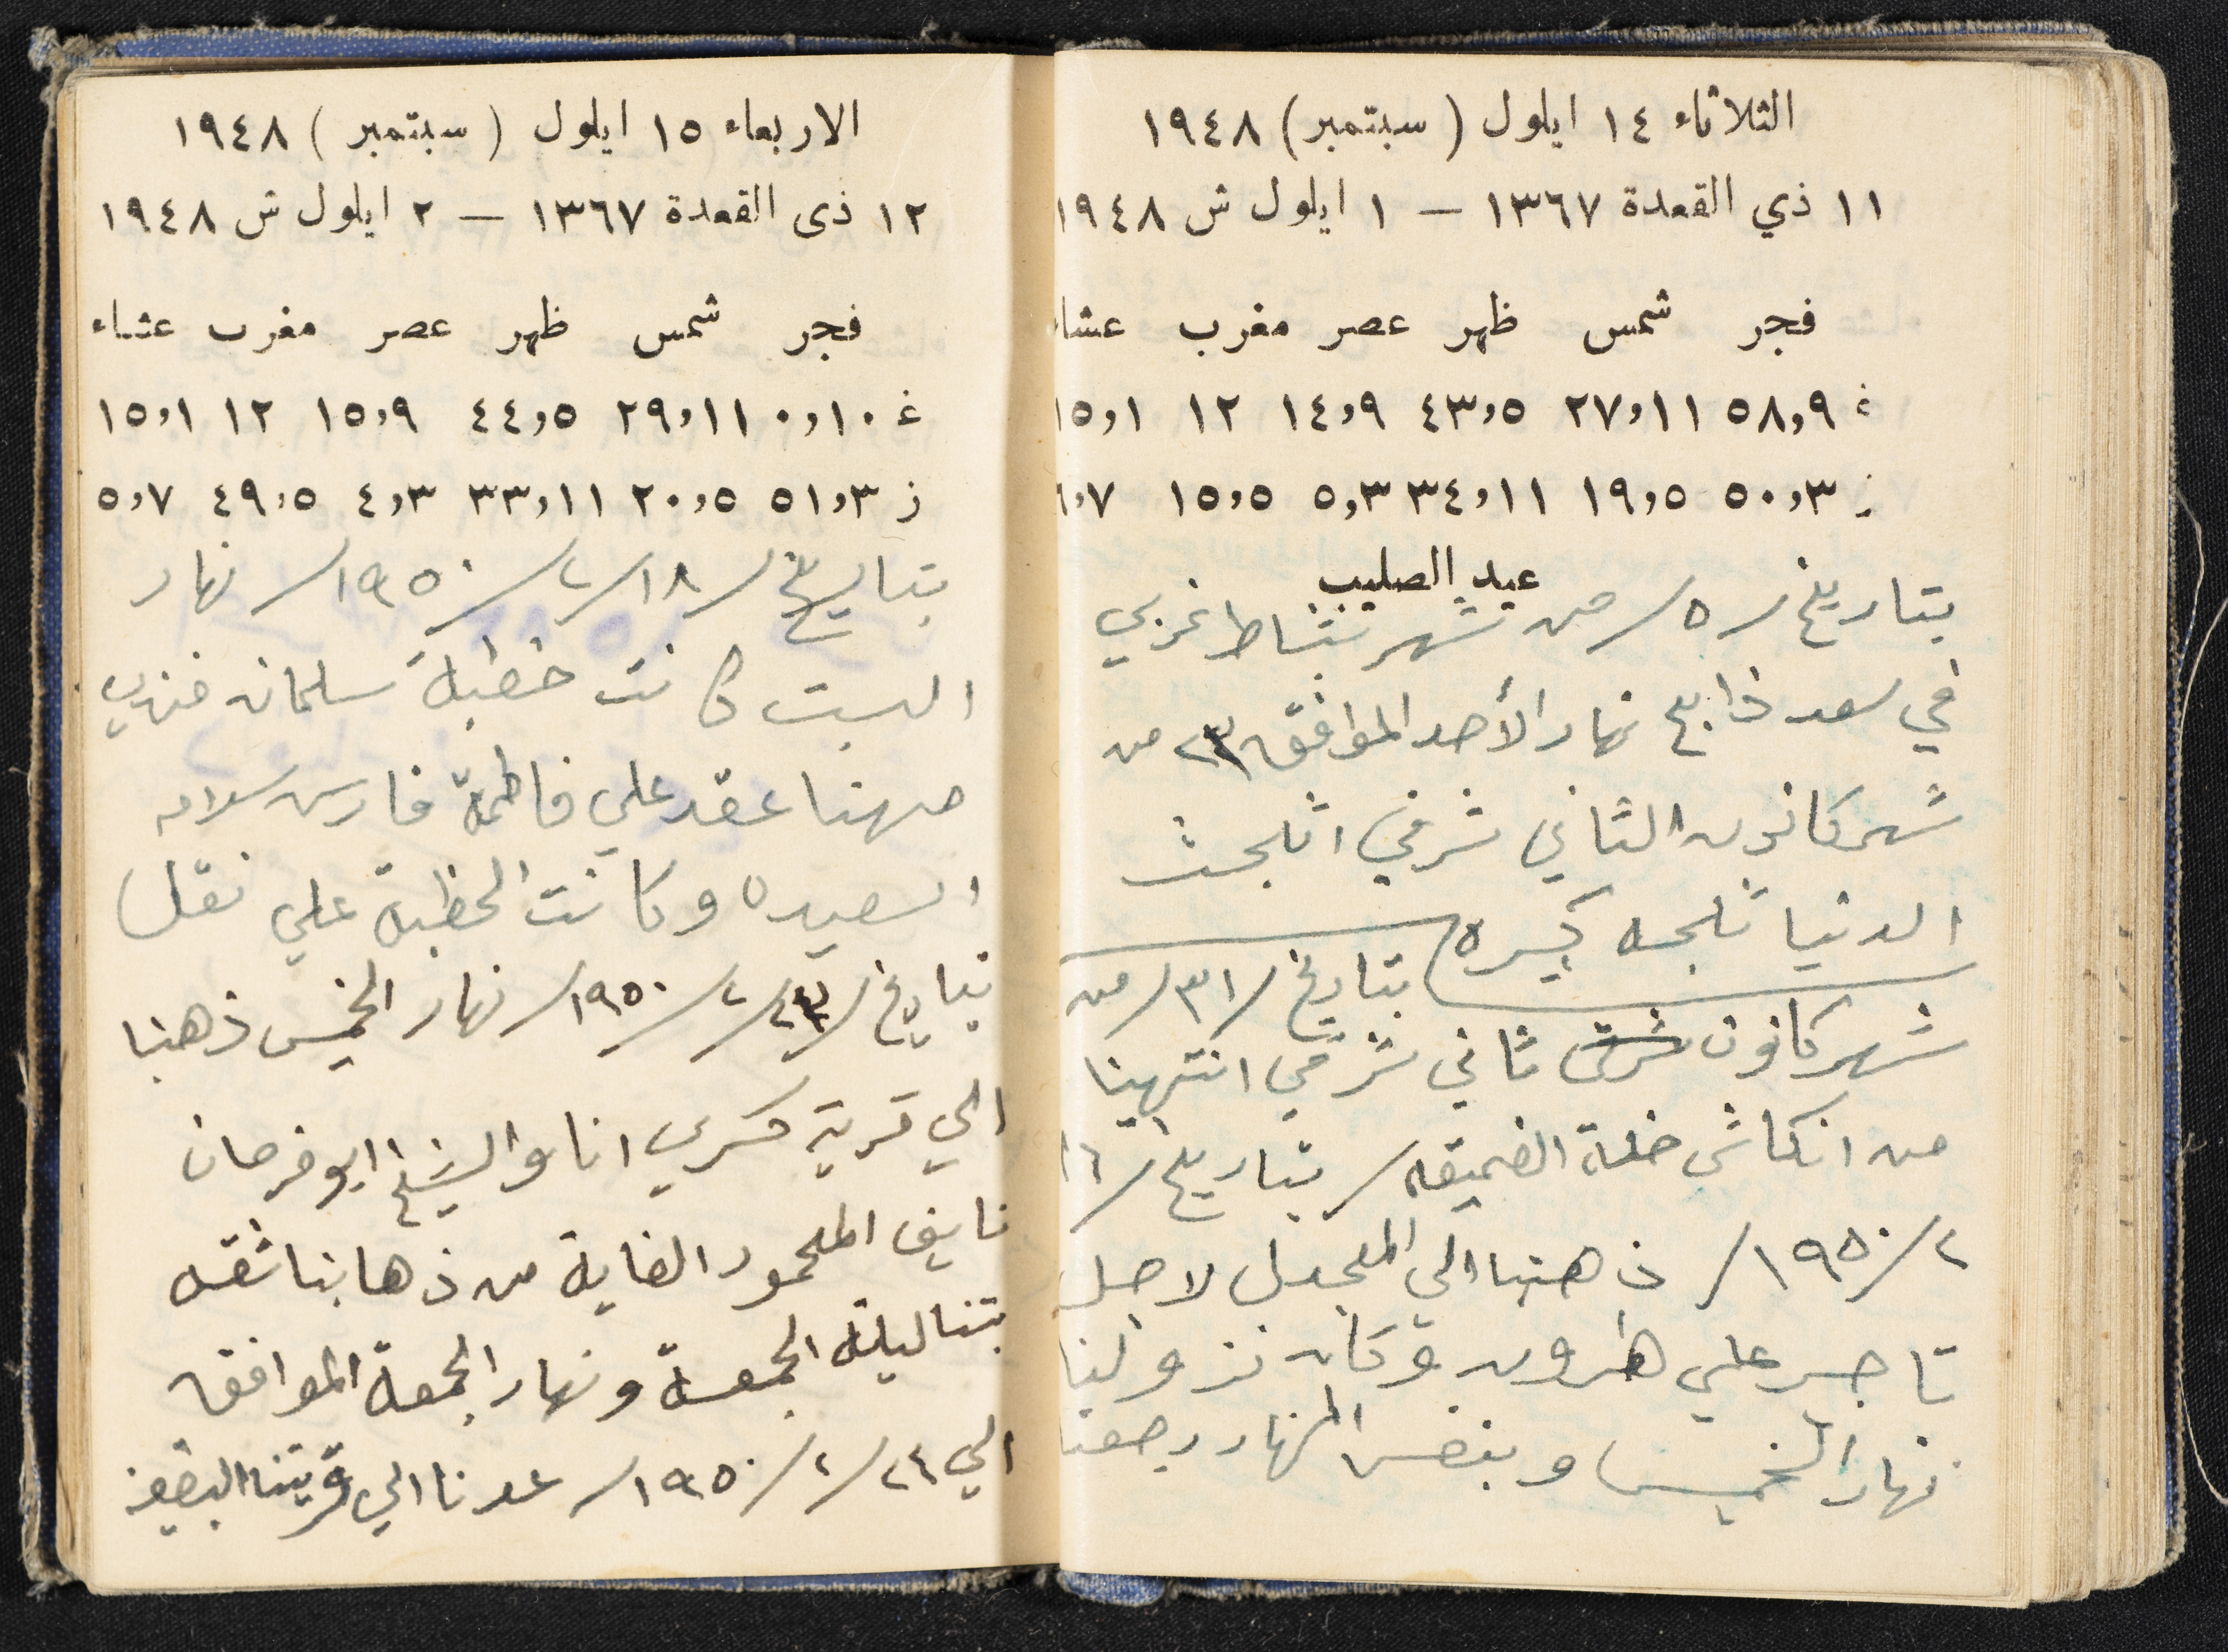 الثلاثاء ١٤ ايلول (سبتمبر) ١٩٤٨
١١ ذي القعدة ١٣٦٧ — ١ ايلول ش ١٩٤٨
فجر شمس ظهر عصر مغرب عشاء
غ ٥٨,٩ ٢٧,١١ ٤٣,٥ ١٤,٩ ١٢ ١٥,١
ز ٥٠,٣ ١٩,٥ ٣٤,١١ ٥,٣ ١٥,٥ ٦,٧
عيد الصليب
بتاريخ /٥/ من شهر شباط غربي
في سعد ذابح نهار الأحد الموافق ٢٣ من
شهر كانون الثاني شرقي اثلجت
الدنيا ثلجه كبيره بتاريخ /٣١/ من
شهر كانون شرقي ثاني شرقي انتهينا
من انكاش خلة الضميقه / بتاريخ /١٦
٢/١٩٥٠/ ذهبنا الي المجدل لاجل
تاجير علي هارون وكان نزولنا
نهار الخميس وبنفس النهار رجعنا
الاربعاء ١٥ ايلول (سبتمبر) ١٩٤٨
١٢ ذى القعدة ١٣٦٧ — ٢ ايلول ش ١٩٤٨
فجر شمس ظهر عصر مغرب عشاء
غ ٠,١٠ ٢٩,١١ ٤٤,٥ ١٥,٩ ١٢ ١٥,١
ز ٥١,٣ ٢٠,٥ ٣٣,١١ ٤,٣ ٤٩,٥ ٥,٧
بتاريخ /١٨/٢/١٩٥٠/ نهار
السبت كانت خطبة سلمان فندي
مهنا عقد علي فاطمة فارس سلامه
السعيده وكانت الخطبة علي نقل
بتاريخ /٢٣/٢/١٩٥٠/ نهار الخميس ذهبنا
الي قرية كسري انا والشيخ ابو فرحان
نايف المحمود الغاية من ذهابنا ثقله
بتنا ليلة الجمعة ونهار الجمعة الموافق
الي ٢٤/٢/١٩٥٠/ عدنا الي قريتنا البقيعة